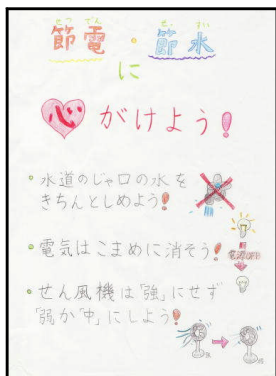 せつでん せっすい
節電・節水
に
心がけよう!
・水道のじゃ口の水を
きちんとしめよう!
・電気はこまめに消そう!
・せん風機は「強」にせず
「弱」か「中」にしよう!